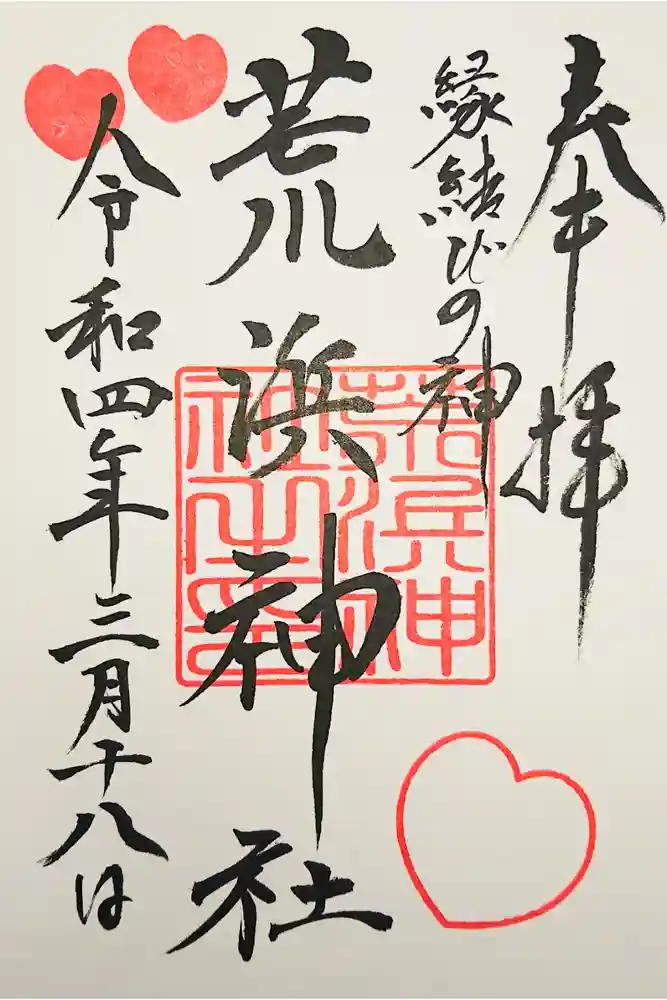 奉拝
縁結びの神
荒浜神社
荒浜神
社之印
令和四年三月十八日